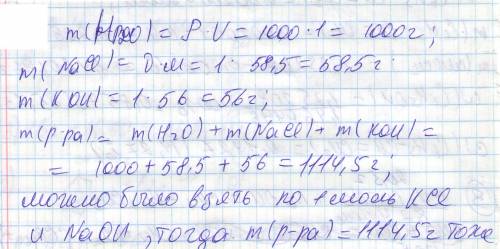 m(H₂O) = ρ·V = 1000·1 = 1000г;
m(NaCl) = ν·M = 1·58,5 = 58,5г.
m(KOH) = 1·56 = 56г;
m(р-ра) = m(H₂O) + m(NaCl) + m(KOH) =
= 1000 + 58,5 + 56 = 1114,5г;
можно было взять по 1 моль KCl
и NaOH, тогда m(р-ра) = 1114,5г тоже